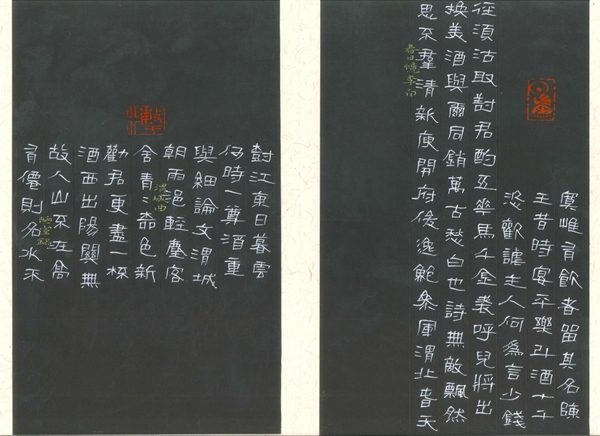 寞唯有飲者留其名陳
王昔時宴平樂斗酒十千
恣歡謔主人何為言少錢
徑須沽取對君酌五花馬千金裘呼兒將出
換美酒與爾同銷萬古愁白也詩無敵飄然
春日憶李白
思不羣清新庾開府俊逸鮑參軍渭北春天
樹江東日暮雲
何時一尊酒重
與細論文渭城
朝雨浥輕塵客
渭城曲
舍青〻柳色新
勸君更盡一杯
酒西出陽關無
故人山不在高
陋室銘
有僊則名水不